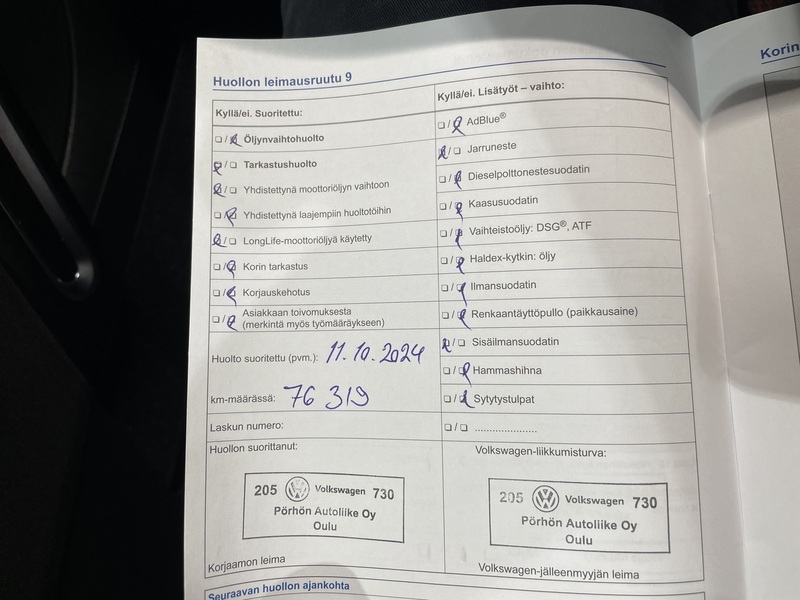 Huollon leimausruutu 9
Kyllä/ei. Suoritettu:
☐/☒ Öljynvaihtohuolto
☒/☐ Tarkastushuolto
☒/☐ Yhdistettynä moottoriöljyn vaihtoon
☐/☒ Yhdistettynä laajempiin huoltotöihin
☒/☐ LongLife-moottoriöljyä käytetty
☐/☒ Korin tarkastus
☐/☒ Korjauskehotus
☐/☒ Asiakkaan toivomuksesta
(merkintä myös työmääräykseen)
Huolto suoritettu (pvm.): 11.10.2024
km-määrässä: 76 319
Laskun numero:
Huollon suorittanut:
205 Volkswagen 730
Pörhön Autoliike Oy
Oulu
Korjaamon leima
Kyllä/ei. Lisätyöt – vaihto:
☐/☒ AdBlue®
☒/☐ Jarruneste
☐/☒ Dieselpolttonestesuodatin
☐/☒ Kaasusuodatin
☐/☒ Vaihteistoöljy: DSG®, ATF
☐/☒ Haldex-kytkin: öljy
☐/☒ Ilmansuodatin
☐/☒ Renkaantäyttöpullo (paikkausaine)
☒/☐ Sisäilmansuodatin
☐/☒ Hammashihna
☐/☒ Sytytystulpat
☐/☐ .....................
Volkswagen-liikkumisturva:
205 Volkswagen 730
Pörhön Autoliike Oy
Oulu
Volkswagen-jälleenmyyjän leima
Seuraavan huollon ajankohta
Korin